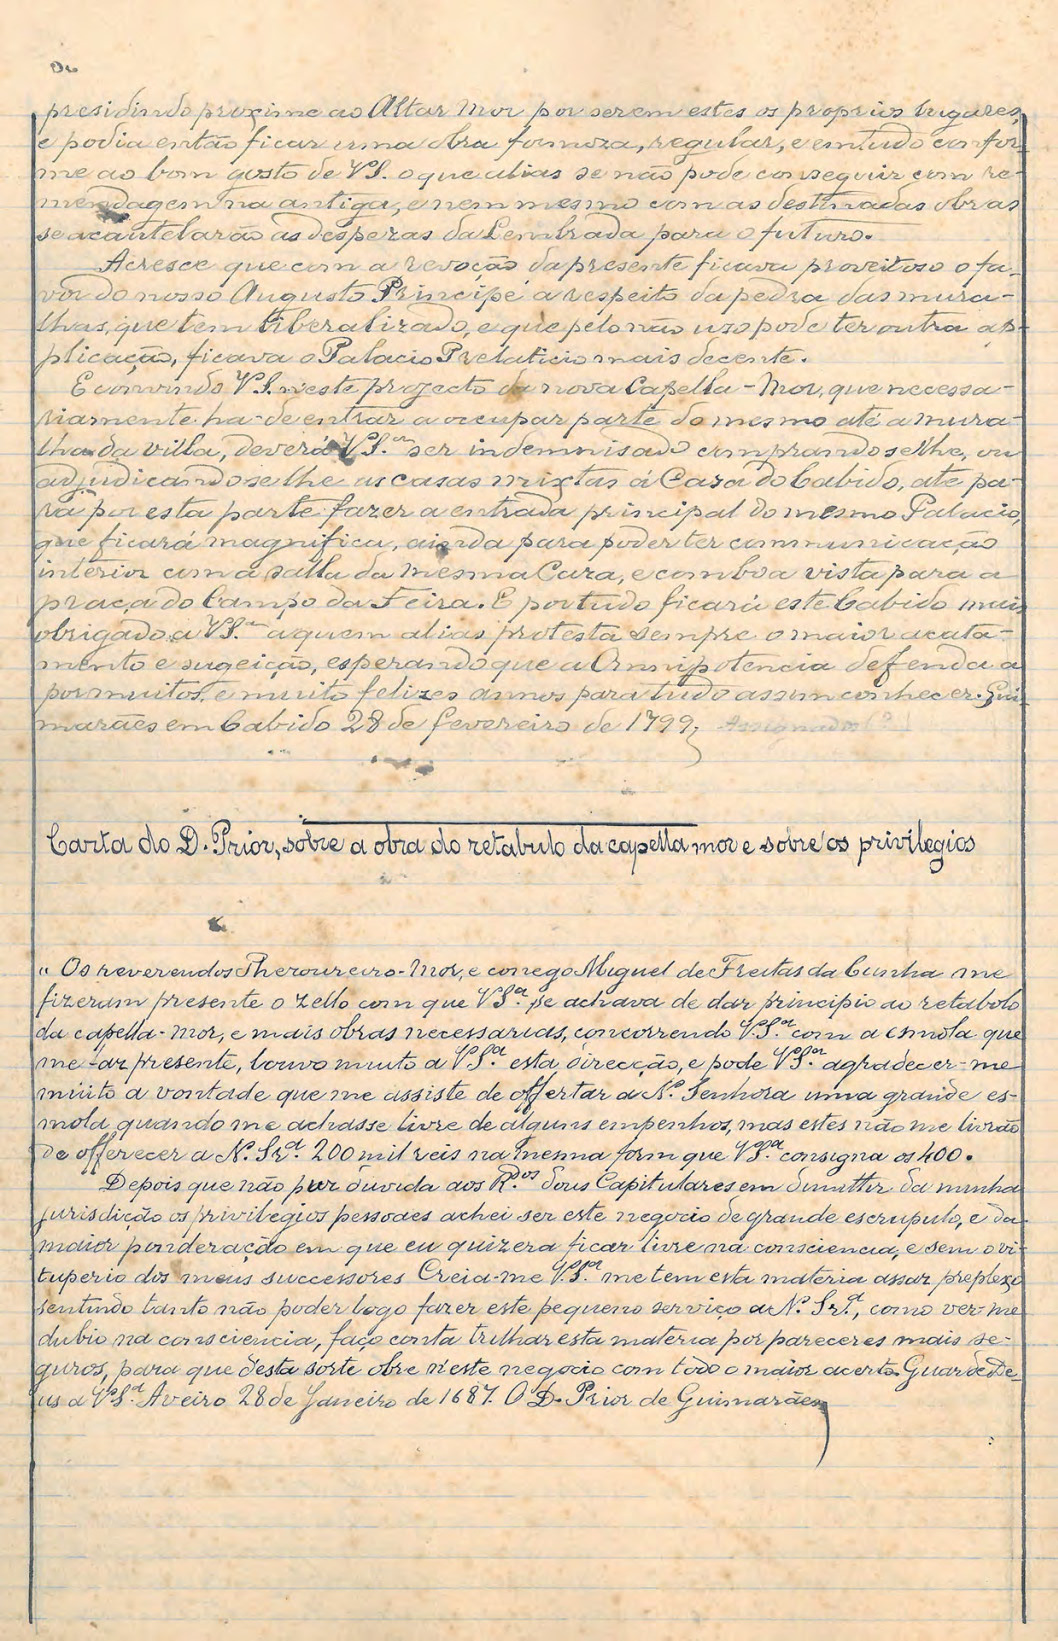 presidindo proximo ao Altar Mor por serem estes os proprios lugares,
e podia então ficar uma obra formoza, regular, e em tudo confor-
me ao bom gosto de V.S. o que alias se não pode conseguir com re-
mendagem na antiga, e nem mesmo com as destinadas obras
se acautelarão as despezas da Lembrada para o futuro.
Acresce que com a revoção da presente ficava proveitoso o fa-
vor do nosso Augusto Principe a respeito da pedra das mura-
lhas, que tem liberalizado, e que pelo não uzo pode ter outra ap-
plicação, ficava o Palacio Prelaticio mais decente.
E convindo V.S. n'este projecto da nova Capella-Mor, que necessa-
riamente ha-de entrar a occupar parte do mesmo até a mura-
lha da villa, deverá V.S.ª ser indemnisado comprando se lhe, ou
adjudicando se lhe as casas mixtas á Caza do Cabido, até pa-
ra por esta parte fazer a entrada principal do mesmo Palacio,
que ficará magnifica, ainda para poder ter communicação
interior com a salla da mesma Caza, e com boa vista para a
praça do Campo da Feira. E por tudo ficará este Cabido mais
obrigado a V.S.ª a quem alias protesta sempre o maior acata-
mento e sugeição, esperando que a Omnipotencia defenda a
por muitos e muito felizes annos para tudo assim conhecer. Gui-
marães em Cabido 28 de fevereiro de 1799, Assignados (?)
Carta do D. Prior, sobre a obra do retabulo da capella mor e sobre os privilegios
" Os reverendos Thezoureiro-Mor, e conego Miguel de Freitas da Cunha me
fizeram presente o zello com que V.S.ª se achava de dar principio ao retabolo
da capella-mor, e mais obras necessarias, concorrendo V.S.ª com a esmola que
me faz presente, louvo muito a V.S.ª esta direcção, e pode V.S.ª agradecer-me
muito a vontade que me assiste de offertar a N. Senhora uma grande es-
mola quando me achasse livre de alguns empenhos, mas estes não me livrão
de offerecer a N. Sr.ª 200 mil reis na mesma form que V.S.ª consigna os 400.
Depois que não pur duvida aos R.dos dous Capitulares em demittir da minha
jurisdição os privilegios pessoaes achei ser este negocio de grande escrupulo, e da
maior ponderação em que eu quizera ficar livre na consciencia, e sem o vi-
tuperio dos meus successores Creia-me V.S.ª me tem esta materia assaz preplexo
sentindo tanto não poder logo fazer este pequeno serviço a N. Sr.ª, como ver-me
dubio na consciencia, faço conta trilhar esta materia por pareceres mais se-
guros, para que d'esta sorte obre n'este negocio com todo o maior acerto. Guarde De-
us a V.S.ª Aveiro 28 de Janeiro de 1687. O D. Prior de Guimarães